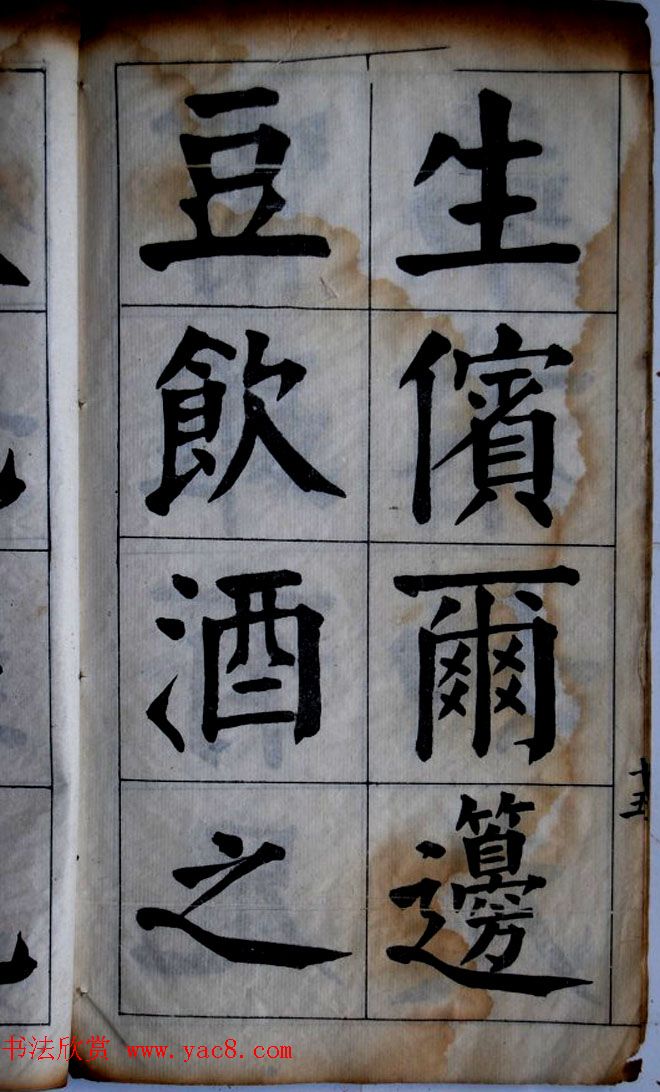 生儐爾籩
豆飲酒之
十五
书法欣赏 www.yac8.com